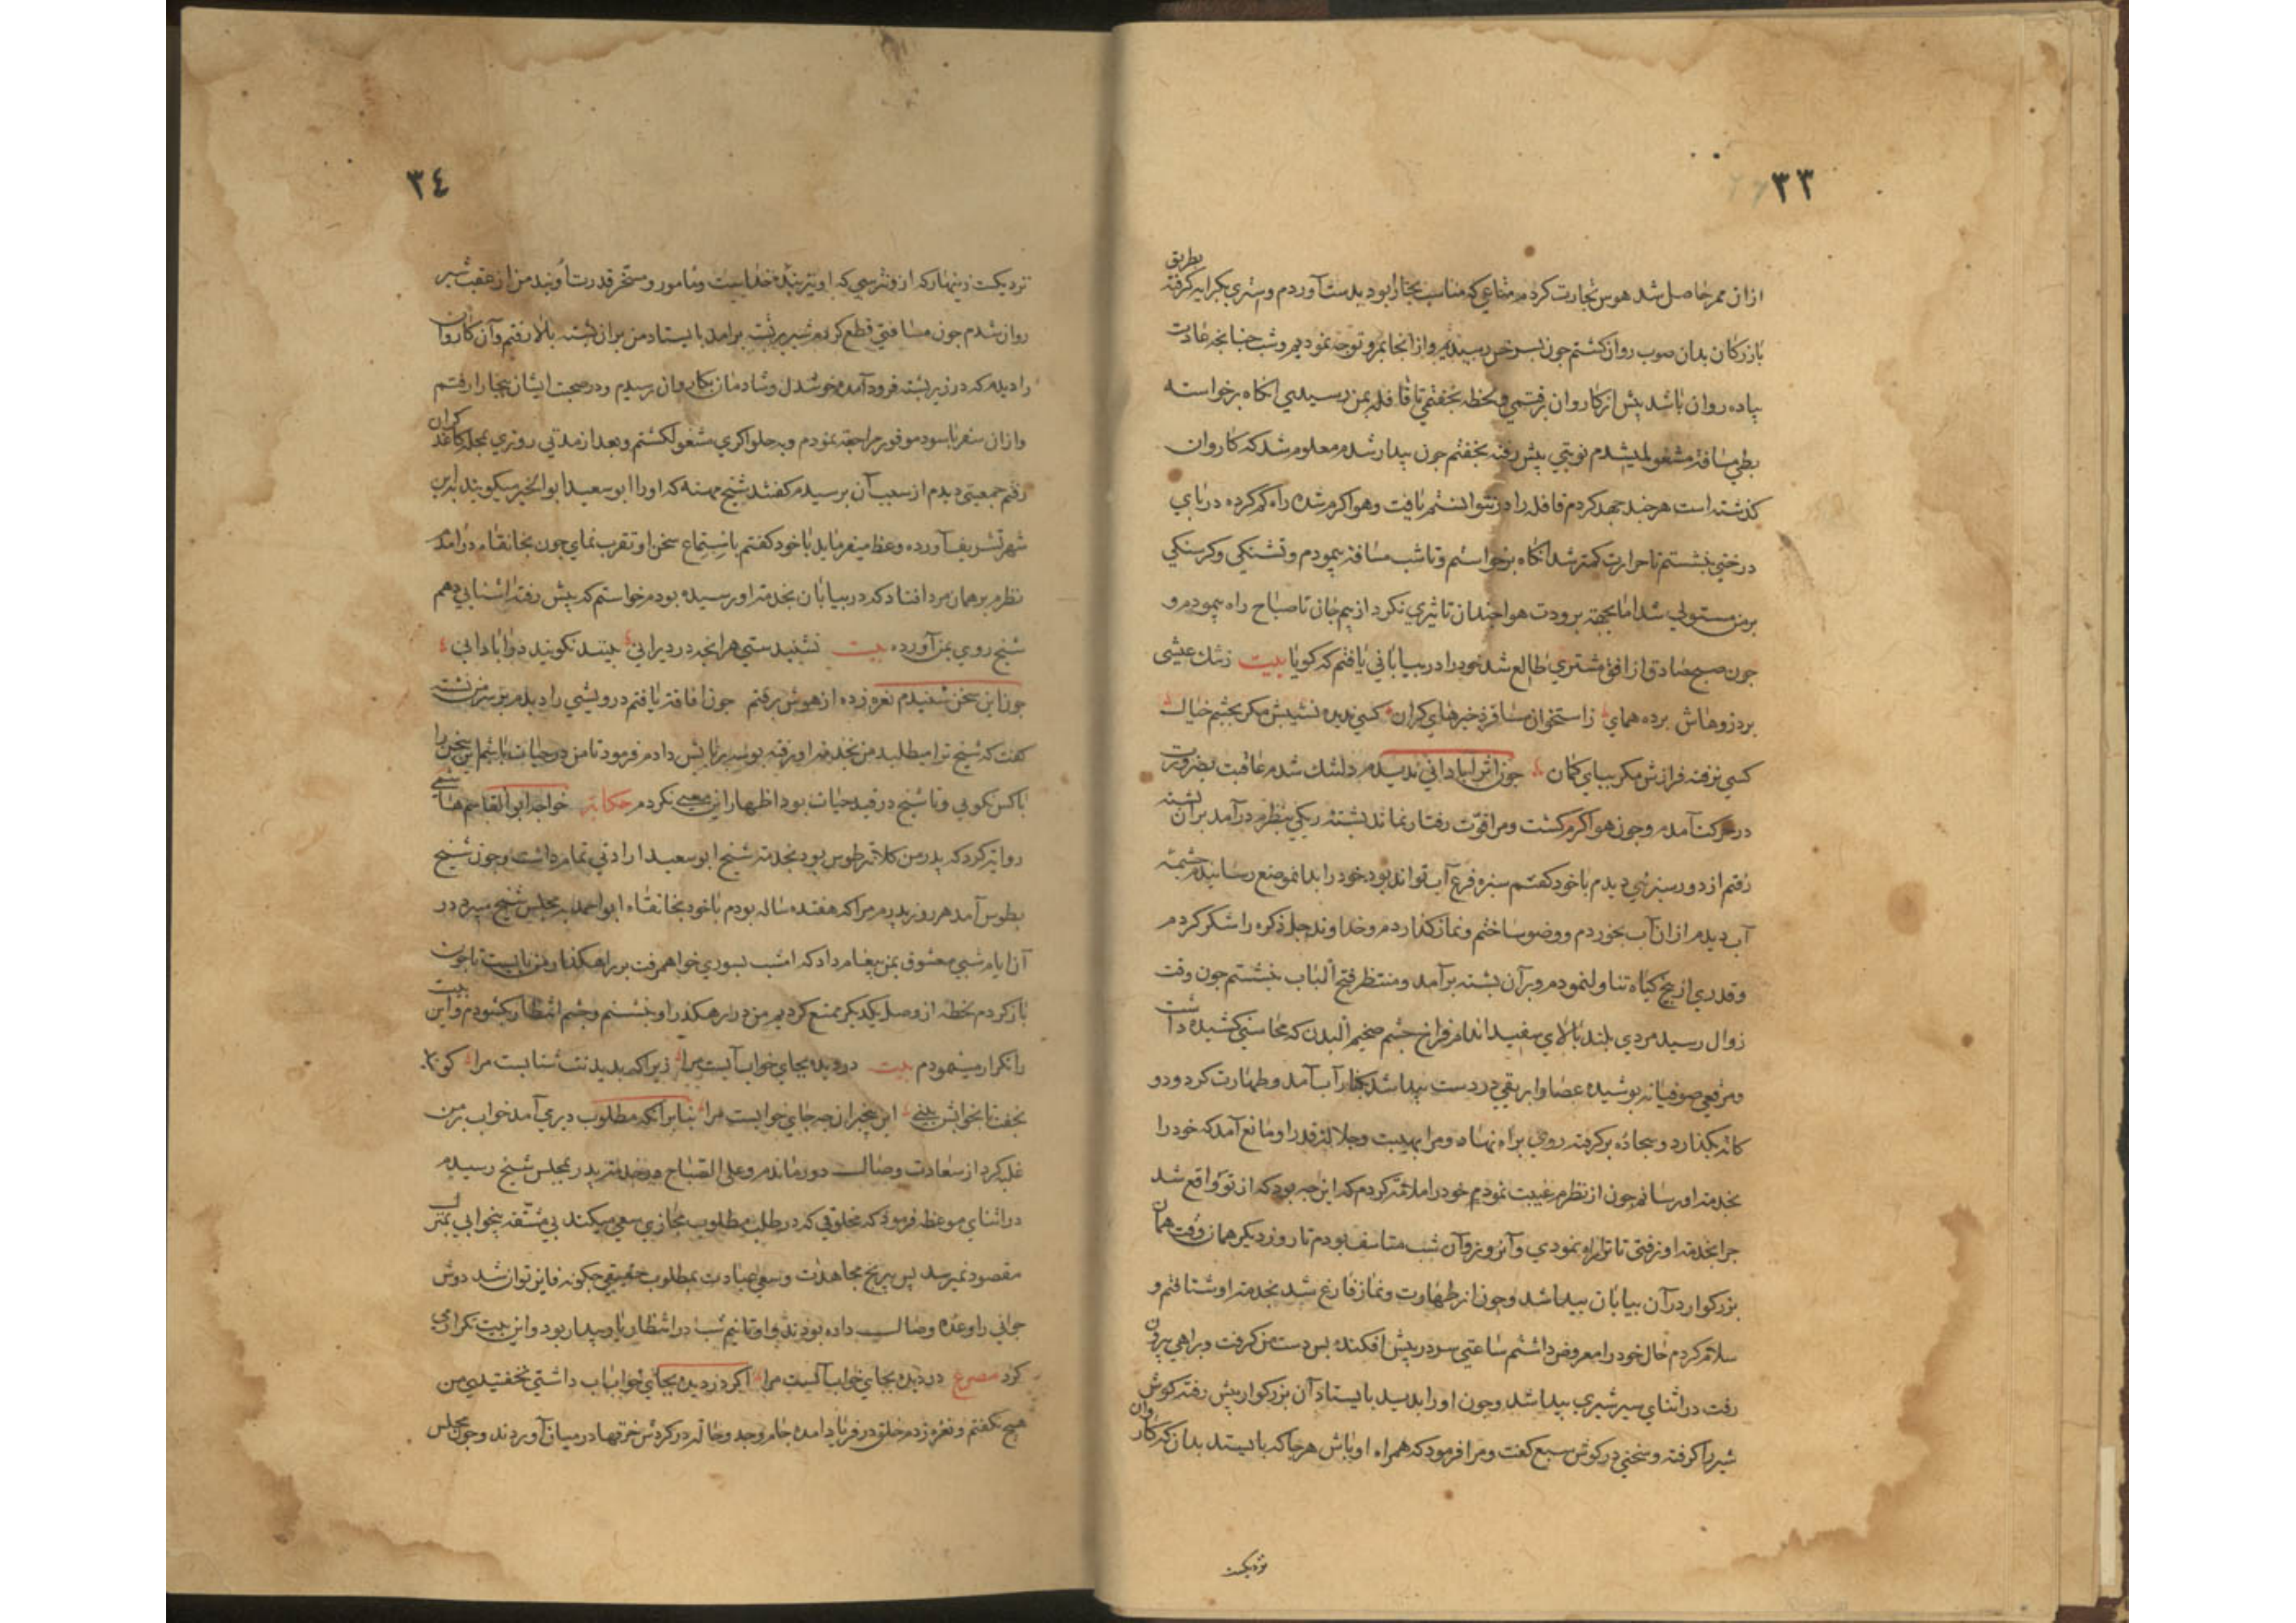 ٣٣
ازان ممر حاصل شد هوس تجارت كردم متاعي كه مناسب بخارا بود بدست آوردم وشتري بكرايه كرفته بطريق
بازركانان بدان صوب روان كشتم جون بسرخس رسيديم وازانجا بمرو توجه نموديم وشب جنانجه عادت
پياده روان باشد پيش از كاروان برفتمي ولحظه بخفتمي تا قافله بمن رسيدي انكاه برخواسته
بطي مسافة مشغول ميشدم نوبتي پيش رفته بخفتم جون بيدار شدم معلوم شد كه كاروان
كذشته است هرجند جهد كردم قافله را در نتوانستم يافت وهوا كرم شده راه كم كرده در پاي
درختي بنشستم تا حرارت كمتر شد انكاه برخواستم وتا شب مسافة پيمودم وتشنكي وكرسنكي
بر من مستولي شد اما بجهة برودت هوا جندان تاثيري نكرد از بيم جان تا صباح راه پيمودم و
جون صبح صادق از افق مشتري طالع شد خود را در بياباني يافتم كه كويا بيت
برده هماي زاستخوان مسافر ذخيرهاي كران كسي نديده نشيبش مكر بچشم خيال
كسي نرفته فرازش مكر بپاي كمان جون اثر آباداني نديدم دلتنك شدم عاقبت بضرورت
در حركت آمدم وجون هوا كرم كشت ومرا قوت رفتار نماند پشته ريكي بنظرم درآمد بر آن پشته
رفتم از دور سبزئي ديدم با خود كفتم سبزه فرع آب تواند بود خود را بدانموضع رسانيدم چشمه
آب ديدم ازان آب بخوردم ووضو ساختم ونماز كذاردم وخداوند جل ذكره را شكر كردم
وقدري از بيخ كياه تناول نمودم وبر آن پشته برآمد ومنتظر فتح الباب بنشستم جون وقت
زوال رسيد مردي بلند بالاي سفيد اندام فراخ جشم ضخيم البدن كه محاسني كشيده داشت
ومرقعي صوفيانه پوشيده عصا وابريقي در دست پيدا شد بكنار آب آمد وطهارت كرد ودو
كانه بكذارد وسجاده بركرفته روي براه نهاد ومرا هيبت وجلالة قدر او مانع آمد كه خود را
بخدمة او رسانم جون از نظرم غيبت نمود خود را ملامة كردم كه اين جه بود كه از تو واقع شد
جرا بخدمة او نرفتي تا ترا راه نمودي وآنروز وآن شب متاسف بودم تا روز ديكر همان وقت همان
بزركوار در آن بيابان پيدا شد وجون از طهارت ونماز فارغ شد بخدمة او شتافتم و
سلام كردم حال خود را معروض داشتم ساعتي سر در پيش افكنده پس دست من كرفت وبراهي بيرون
رفت در اثناي سير شيري پيدا شد وجون او را بديد بايستاد آن بزركوار پيش رفته كوش
شير را كرفته وسخني در كوش سبع كفت ومرا فرمود كه همراه او باش هرجا كه بايستد بدان كه كاروان
نزديكست
٣٤
نزديكست زينهار كه ازو نترسي كه او نيز بنده خداست ومامور ومسخر قدرت اوند من از عقب شير
روان شدم جون مسافتي قطع كردم شير بر پشته برآمد بايستاد من بران پشته بالا رفتم وآن كاروان
را ديدم كه در زير پشته فرود آمده خوشدل وشادمان بكاروان رسيدم ودر صحبت ايشان ببخارا رفتم
وازان سفر با سود موفور مراجعة نمودم وبه حلواكري مشغول كشتم وبعد از مدتي روزي بمحله كاغد كران
رفتم جمعيتي ديدم از سبب آن پرسيدم كفتند شيخ مهنه كه او را ابو سعيد ابو الخير ميكويند بدين
شهر تشريف آورده وعظ ميفرمايد با خود كفتم باستماع سخن او تقرب نماي چون بخانقاه درآمدم
نظرم بر همان مرد افتاد كه در بيابان بخدمة او رسيده بودم خواستم كه پيش رفته اشنايي دهم
شيخ روي بمن آورده بيت نشنيدستي هرانجه در ويراني بينند نكويند در آباداني
جون اين سخن شنيدم نعره زده از هوش برفتم جون افاقة يافتم درويشي را ديدم بر سر من نشسته
كفت كه شيخ ترا ميطلبد من بخدمة او رفته بوسه بر پايش دادم فرمود تا من در حيات باشم اين سخن را
باكس نكويي وتا شيخ در قيد حيات بود اظهار اين معني نكردم حكاية خواجه ابو القاسم هاشمي
رواية كرد كه پدر من كلانتر طوس بود بخدمة شيخ ابو سعيد ارادتي تمام داشت وجون شيخ
بطوس آمد هر روز پدرم مرا كه هفتده ساله بودم با خود بخانقاه ابو احمد بمجلس شيخ ميبرد در
آن ايام شبي معشوق بمن پيغام داد كه امشب بسوري خواهم رفت بر راهكذار من بايست تا جون
باز كردم لحظه از وصل يكديكر تمتع كرديم من در راهكذر او بنشستم وچشم انتظار بكشودم واين بيت
را تكرار مينمودم بيت در ديده بجاي خواب آبست مرا زيرا كه بديدنت شتابست مرا كويند
بخفت تا بخوابش بيني اي بيخبران جه جاي خوابست مرا بنابر آنكه مطلوب ديري آمد خواب بر من
غلبه كرد از سعادت وصال دور ماندم وعلي الصباح در خدمة پدر بمجلس شيخ رسيدم
در اثناي موعظه فرمود كه مخلوقي كه در طلب مطلوب مجازي سعي ميكند بي مشقة بيخوابي بمنزل
مقصود نميرسد پس بي رنج مجاهدت وسعي عبادت بمطلوب حقيقي جكونه فايز توان شد دوش
جواني را وعده وصال داده بودند واو تا نيم شب در انتظار يار بيدار بود واين بيت تكرار مي
كرد مصرع در ديده بجاي خواب آبست مرا اكر در ديده بجاي خواب آب داشتي نخفتيدي من
هيج نكفتم ونعره زدم خلق در فرياد آمده جام وجد وحالة در كردش خرقها در ميان آوردند وجون مجلس